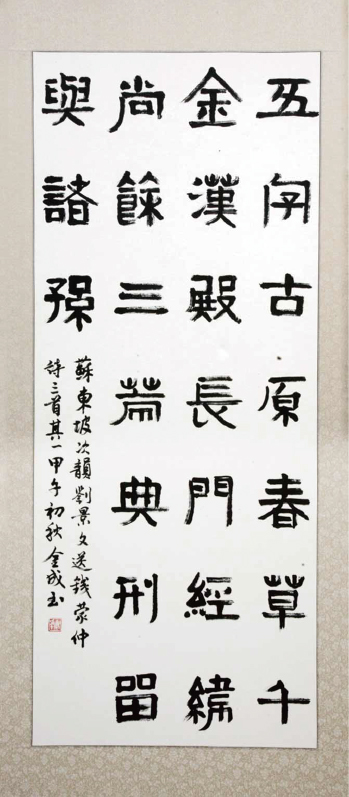 五字古原春草千
金漢殿長門經緯
尚餘三篇典刑留
與諸孫
蘇東坡次韻劉景文送錢蒙仲
詩三首其一甲午初秋金成书